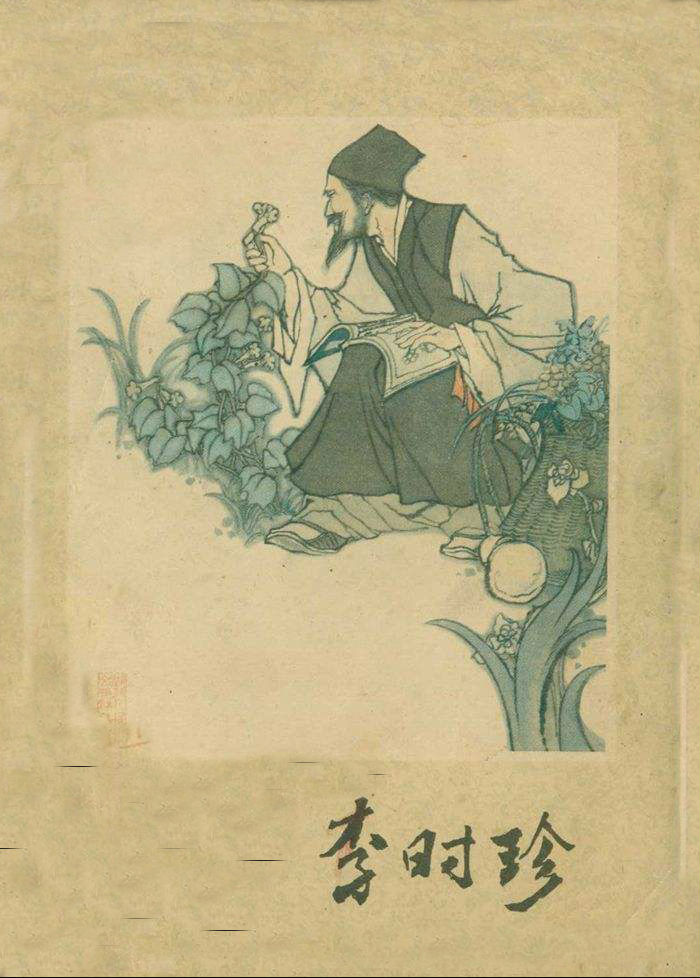 李时珍